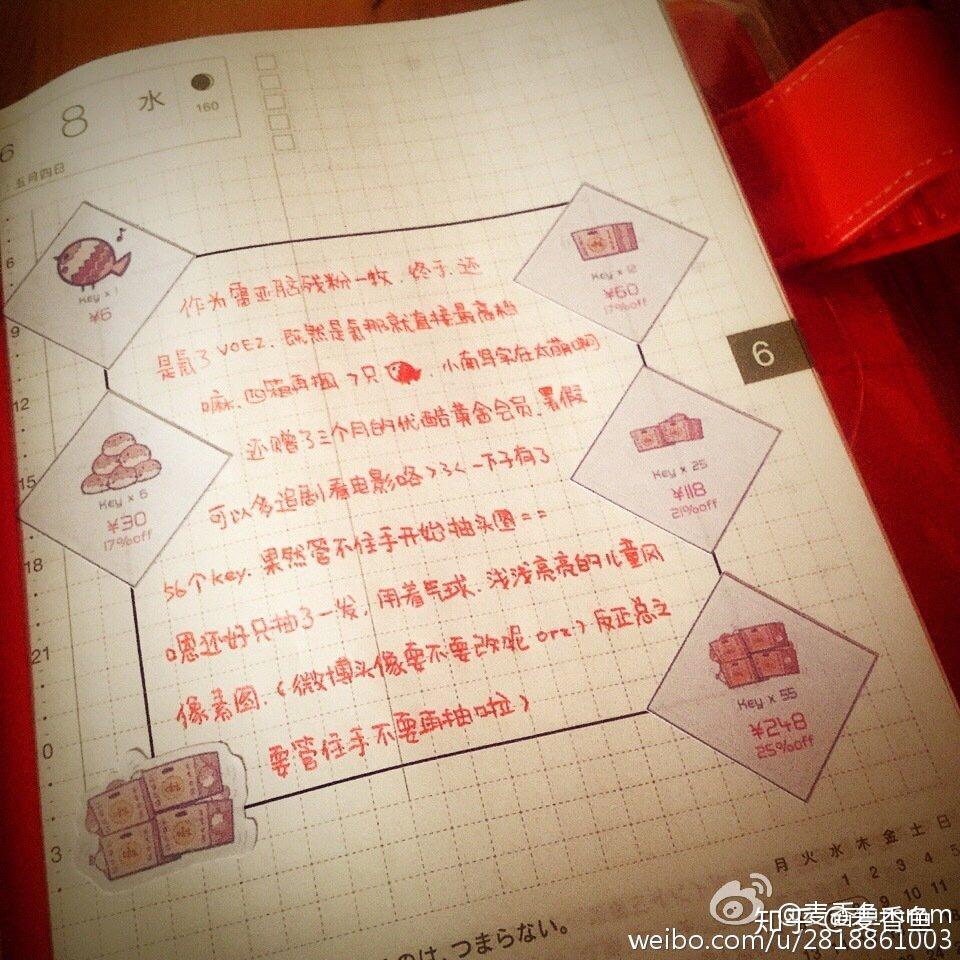 6
8
水
160
五月四日
6
9
12
15
18
21
0
3
Key x 1
¥6
Key x 6
¥30
17%off
Key x 12
¥60
17%off
6
Key x 25
¥118
21%off
Key x 55
¥248
25%off
作为雷亚脑残粉一枚，终于还
是氪了VOEZ. 既然是氪那就直接最高档
嘛，四箱再捆7只 小南寻实在太萌啊
还赠了三个月的优酷黄金会员，暑假
可以多追剧看电影咯>3< 一下子有了
56个key. 果然管不住手开始抽头图==
嗯还好只抽了一发，用着气球，浅浅亮亮的儿童风
像素图.（微博头像要不要改呢orz）反正总之
要管住手不要再抽啦）
月 火 水 木 金 土 日
1 2 3 4 5
9 10 11
のは、つまらない。
知乎 @麦香鱼
weibo.com/u/2818861003